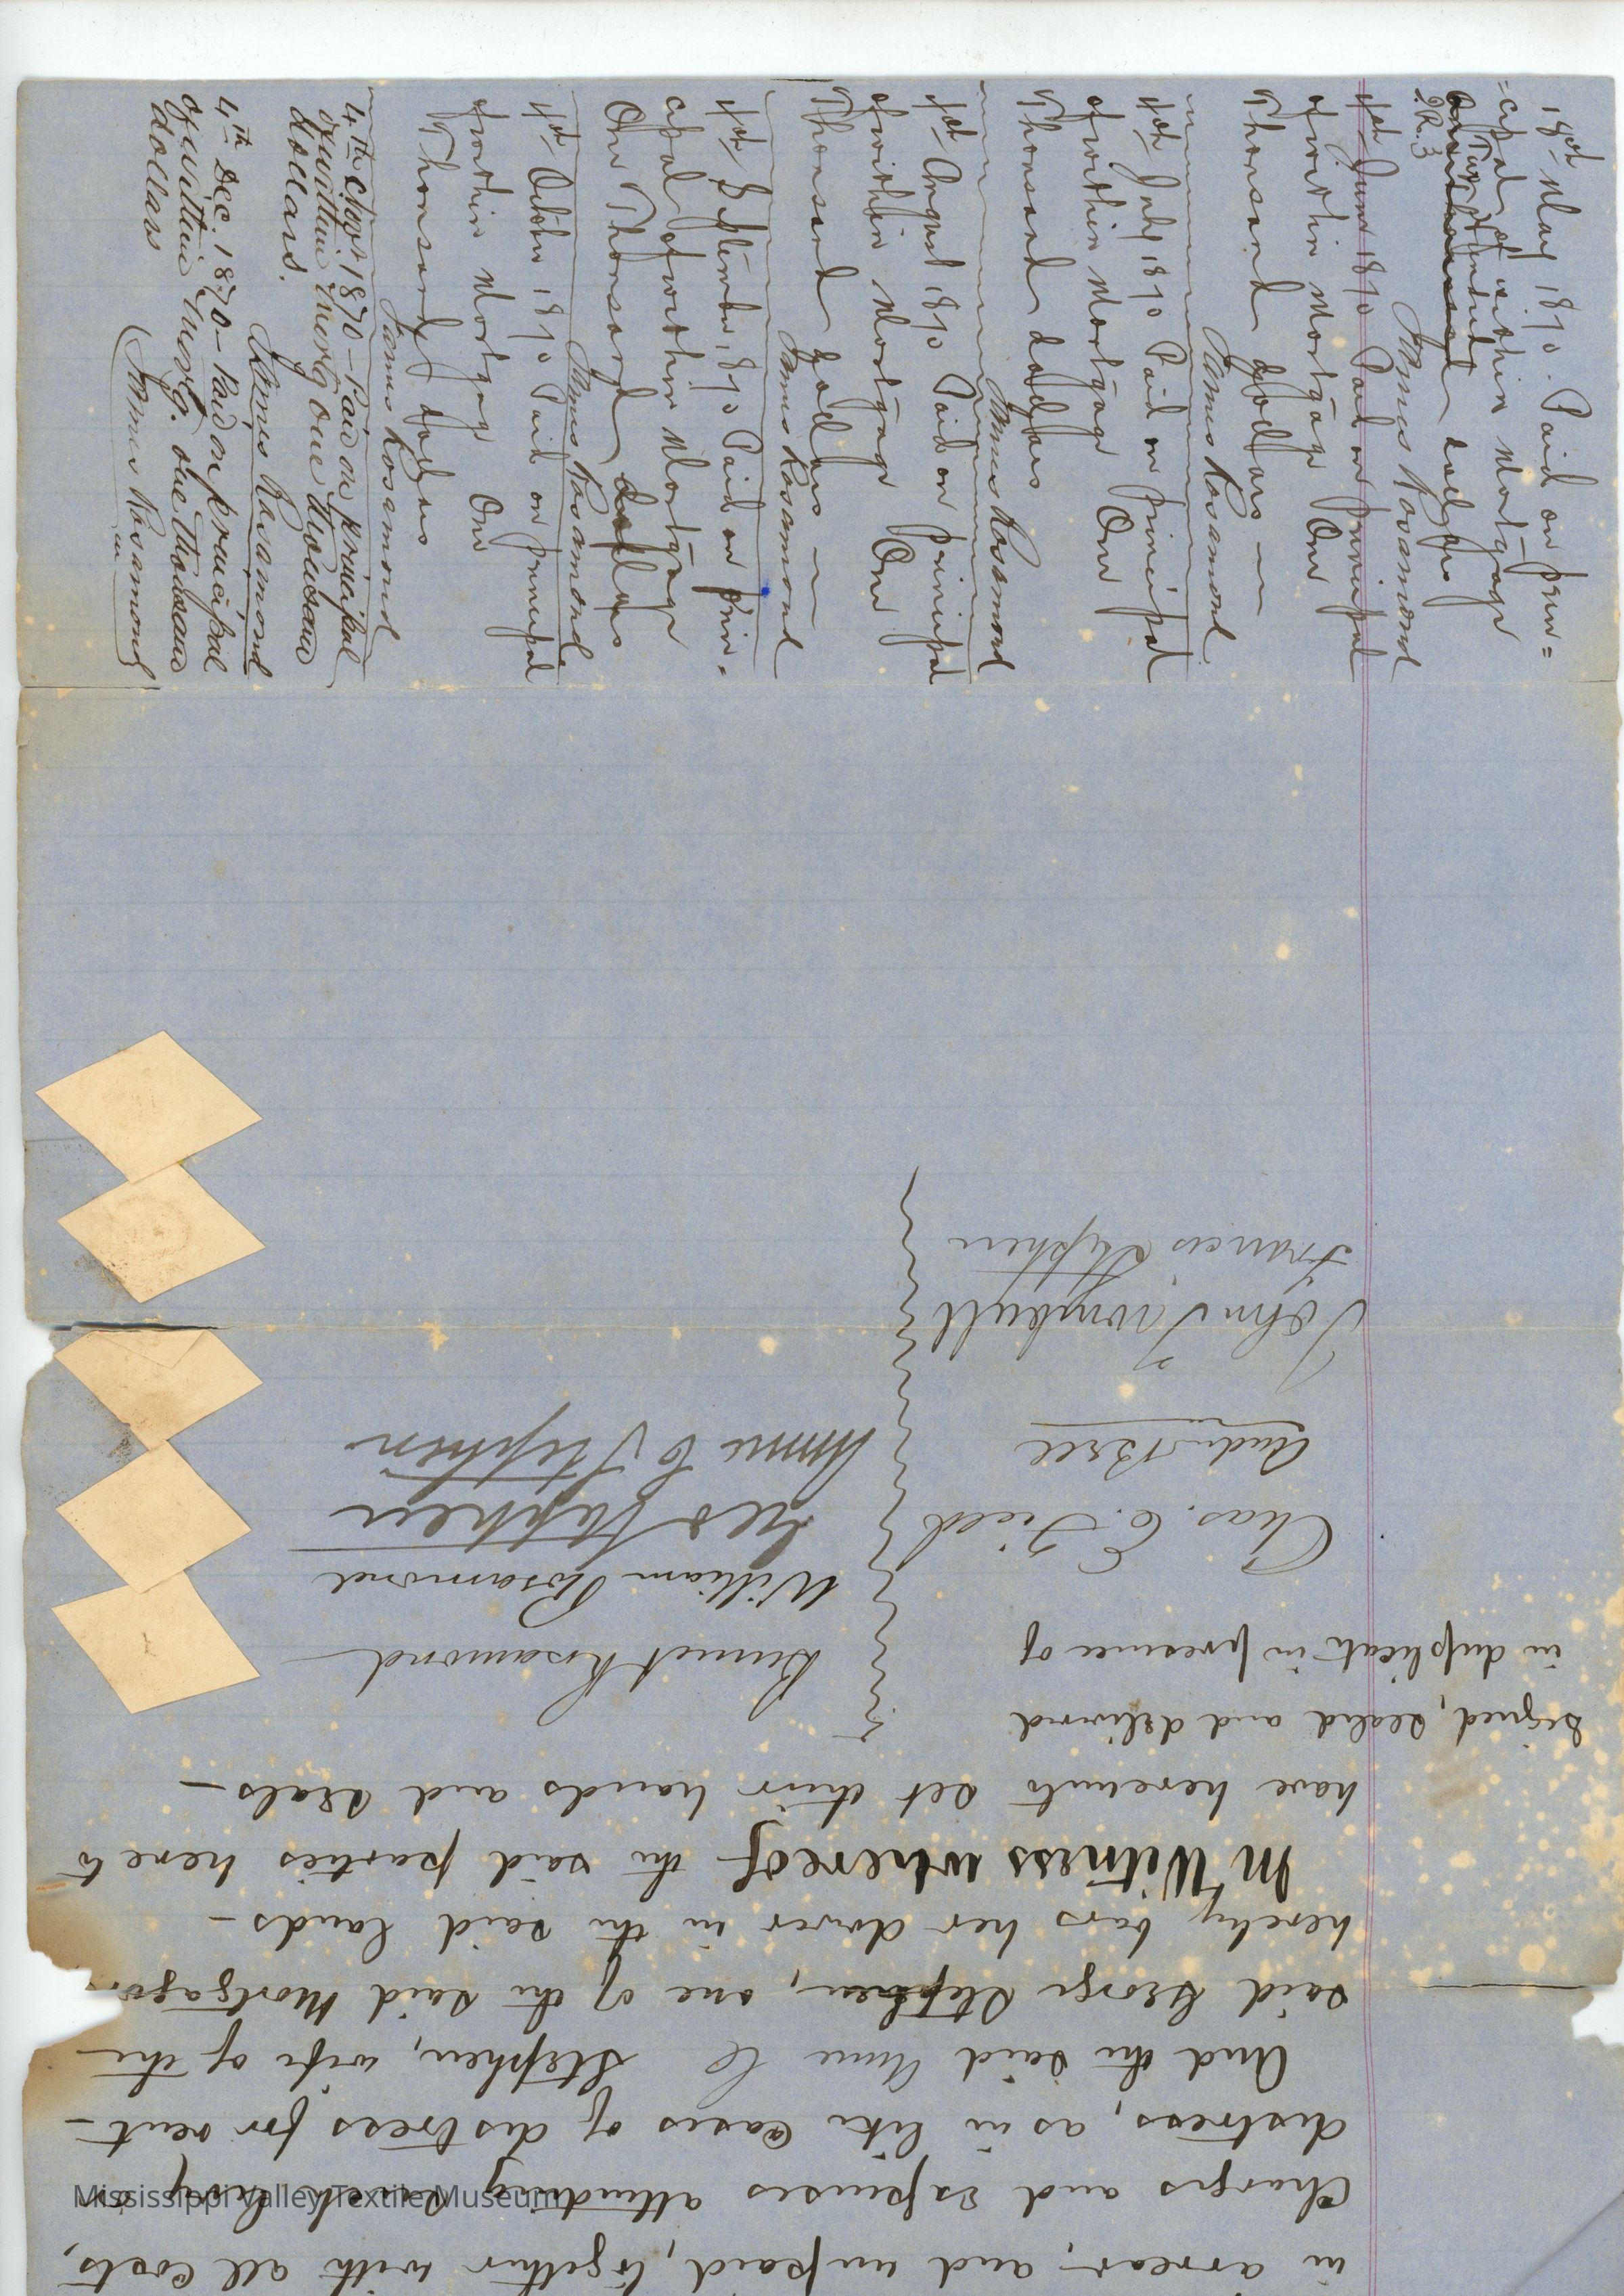 in arrear and unpaid, together with all costs,
Charges and Expenses attending such levy or
distress, as in like cases of distress for rent -
And the said Anne C Stephen, wife of the
said George Stephen, one of the said Mortgagors
hereby bars her dower in the said lands -
In Witness whereof the said parties hereto
have hereunto set their hands and seals -
Signed, sealed and delivered
in duplicate in presence of
Chas. E. Field
Andw Bell
John Turnbull
Francis Stephen
Bennet Rosamond
William Rosamond
Geo Stephen
Annie C Stephen
1st May 1870. Paid on prin=
=cipal of within Mortgage
Two Hundred
dollars
James Rosamond
1st June 1870 Paid on principal
of within Mortgage One
Thousand dollars
James Rosamond
1st July 1870 Paid on principal
of within Mortgage One
Thousand dollars
James Rosamond
1st August 1870 Paid on principal
of within Mortgage One
Thousand dollars
James Rosamond
1st September 1870 Paid on prin-
cipal of within Mortgage
One Thousand dollars
James Rosamond
1st October 1870 Paid on principal
of within Mortgage One
Thousand dollars
James Rosamond
4th Novr 1870 - Paid on principal
of within Mortg one thousand
dollars.
James Rosamond
4th Dec. 1870 - Paid on principal
of within Mortg. one thousand
dollars
James Rosamond
Mississippi Valley Textile Museum